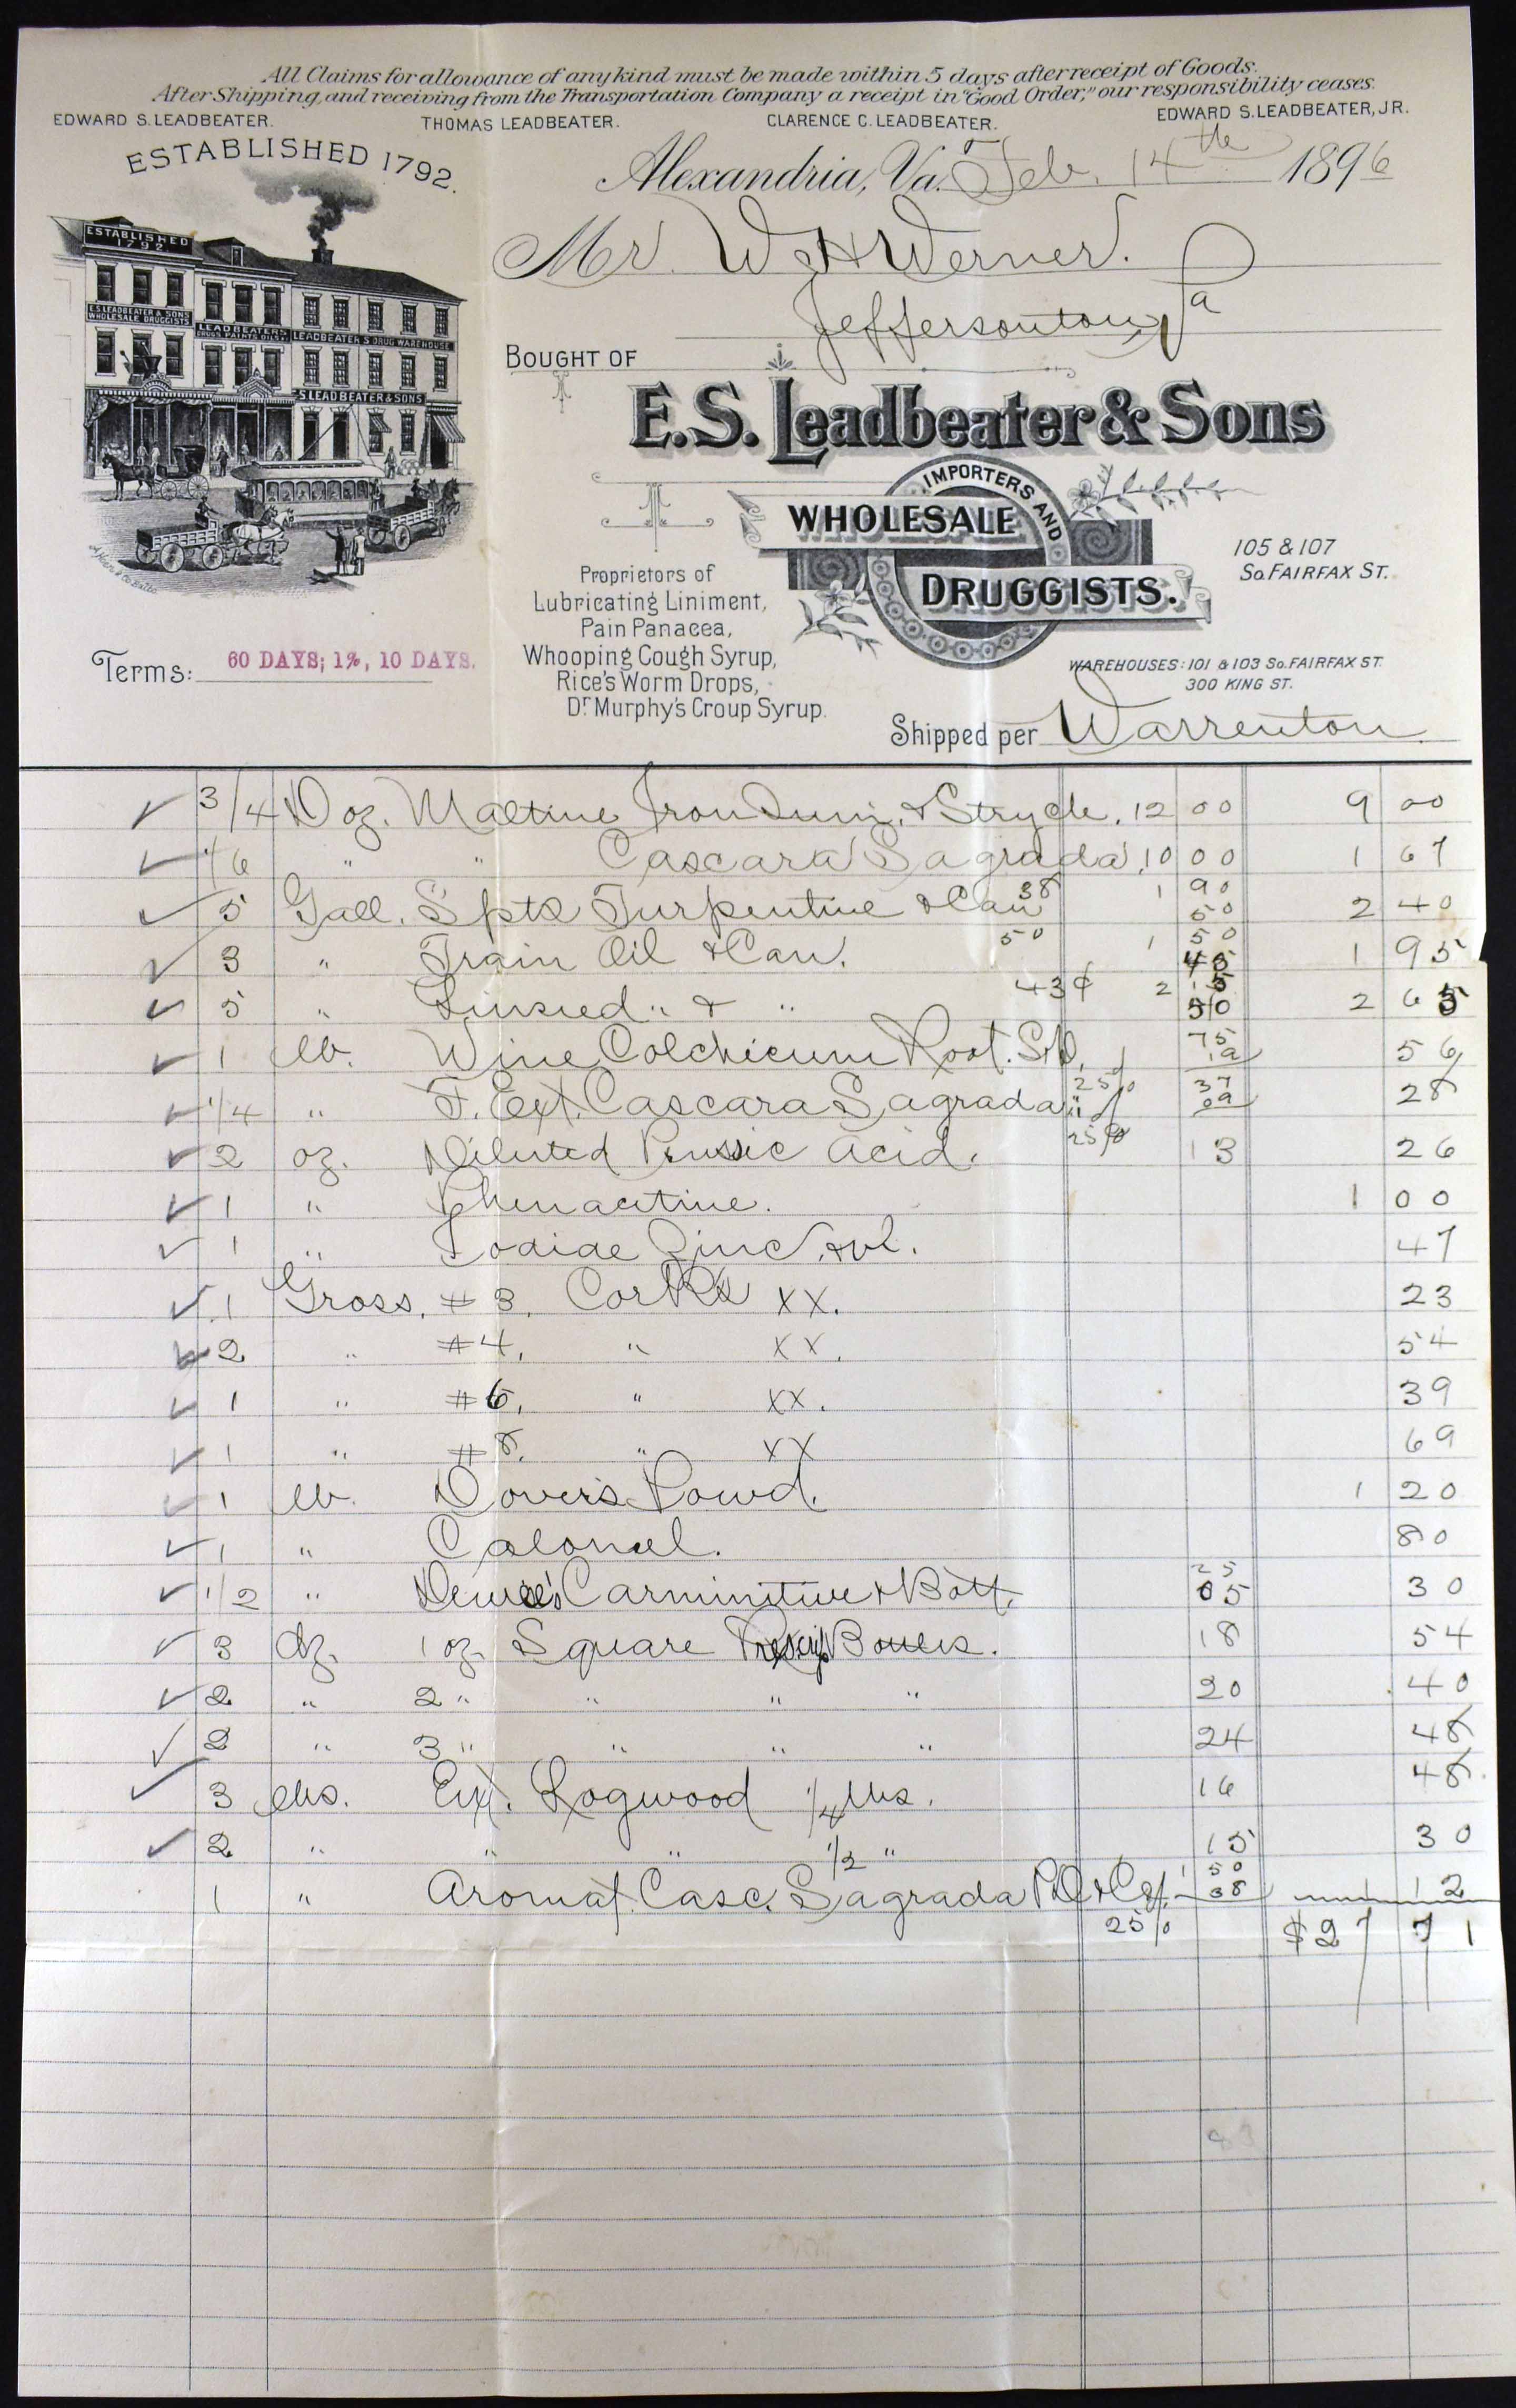 All Claims for allowance of any kind must be made within 5 days after receipt of Goods.
After Shipping, and receiving from the Transportation Company a receipt in "Good Order," our responsibility ceases.
EDWARD S. LEADBEATER. THOMAS LEADBEATER. CLARENCE C. LEADBEATER. EDWARD S. LEADBEATER, JR.
ESTABLISHED 1792.
Alexandria, Va. Feb. 14th 1896
ESTABLISHED
1792
E.S. LEADBEATER & SONS
WHOLESALE DRUGGISTS
LEADBEATERS
DRUGS PAINTS OILS
LEADBEATER'S DRUG WAREHOUSE
E.S LEADBEATER & SONS
Mr. W H Werner.
Jeffersonton, Va
BOUGHT OF
E.S. Leadbeater & Sons
IMPORTERS AND
WHOLESALE
DRUGGISTS.
105 & 107
So. FAIRFAX ST.
Proprietors of
Lubricating Liniment,
Pain Panacea,
Whooping Cough Syrup,
Rice's Worm Drops,
Dr Murphy's Croup Syrup.
WAREHOUSES: 101 & 103 So. FAIRFAX ST.
300 KING ST.
Terms: 60 DAYS; 1%, 10 DAYS.
Shipped per Warrenton
3/4 Doz. Maltine Iron Quin. & Strych. 12 00 9 00
1/6 " " Cascara Sagrada 10 00 1 67
5 Gall. Spts Turpentine & Can 38 1 90 50 2 40
3 " Train Oil & Can. 50 1 50 45 1 95
5 " Linseed " & " 43¢ 2 15 50 2 65
1 lb. Wine Colchicum Root. Sd. 25% 75 19 56
1/4 " F. Ext. Cascara Sagrada " 25% 37 09 28
2 oz. Diluted Prussic Acid. 13 26
1 " Phenacetine. 1 00
1 " Iodide Zinc. & vl. 47
1 Gross. # 3. Corks XX. 23
2 " # 4. " XX. 54
1 " # 6. " XX. 39
1 " # 8. " XX 69
1 lb. Dover's Powd. 1 20
1 " Calomel. 80
1/2 " Dewee's Carminitive & Bott. 25 05 30
3 dz. 1 oz. Square Prescrip Bottles. 18 54
2 " 2 " " " " 20 40
2 " 3 " " " " 24 48
3 lbs. Ext. Logwood 1/4 lbs. 16 48
2 " " " 1/2 " 15 30
1 " Aromat. Casc. Sagrada PD & Co. 25% 1 50 38 1 12
$27 71